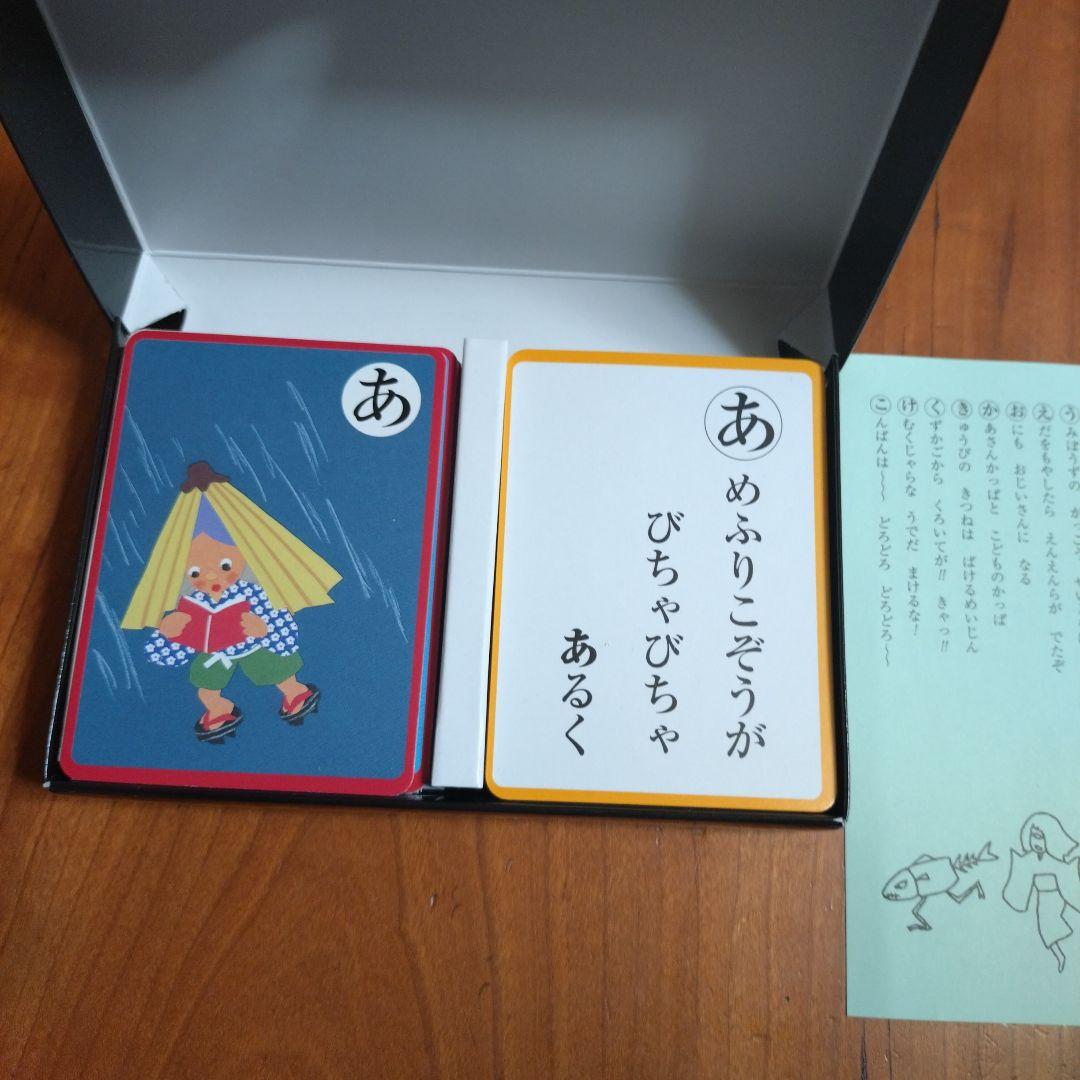 あ
あめふりこぞうが
びちゃびちゃ
あるく
うみぼうずの
えだをもやしたら えんえんらが でたぞ
おにも おじいさんに なる
かあさんかっぱと こどものかっぱ
きゅうびの きつねは ばけるめいじん
くずかごから くろいてが!! きゃっ!!
けむくじゃらな うでだ まけるな!
こんばんは〜〜 どろどろ どろどろ〜